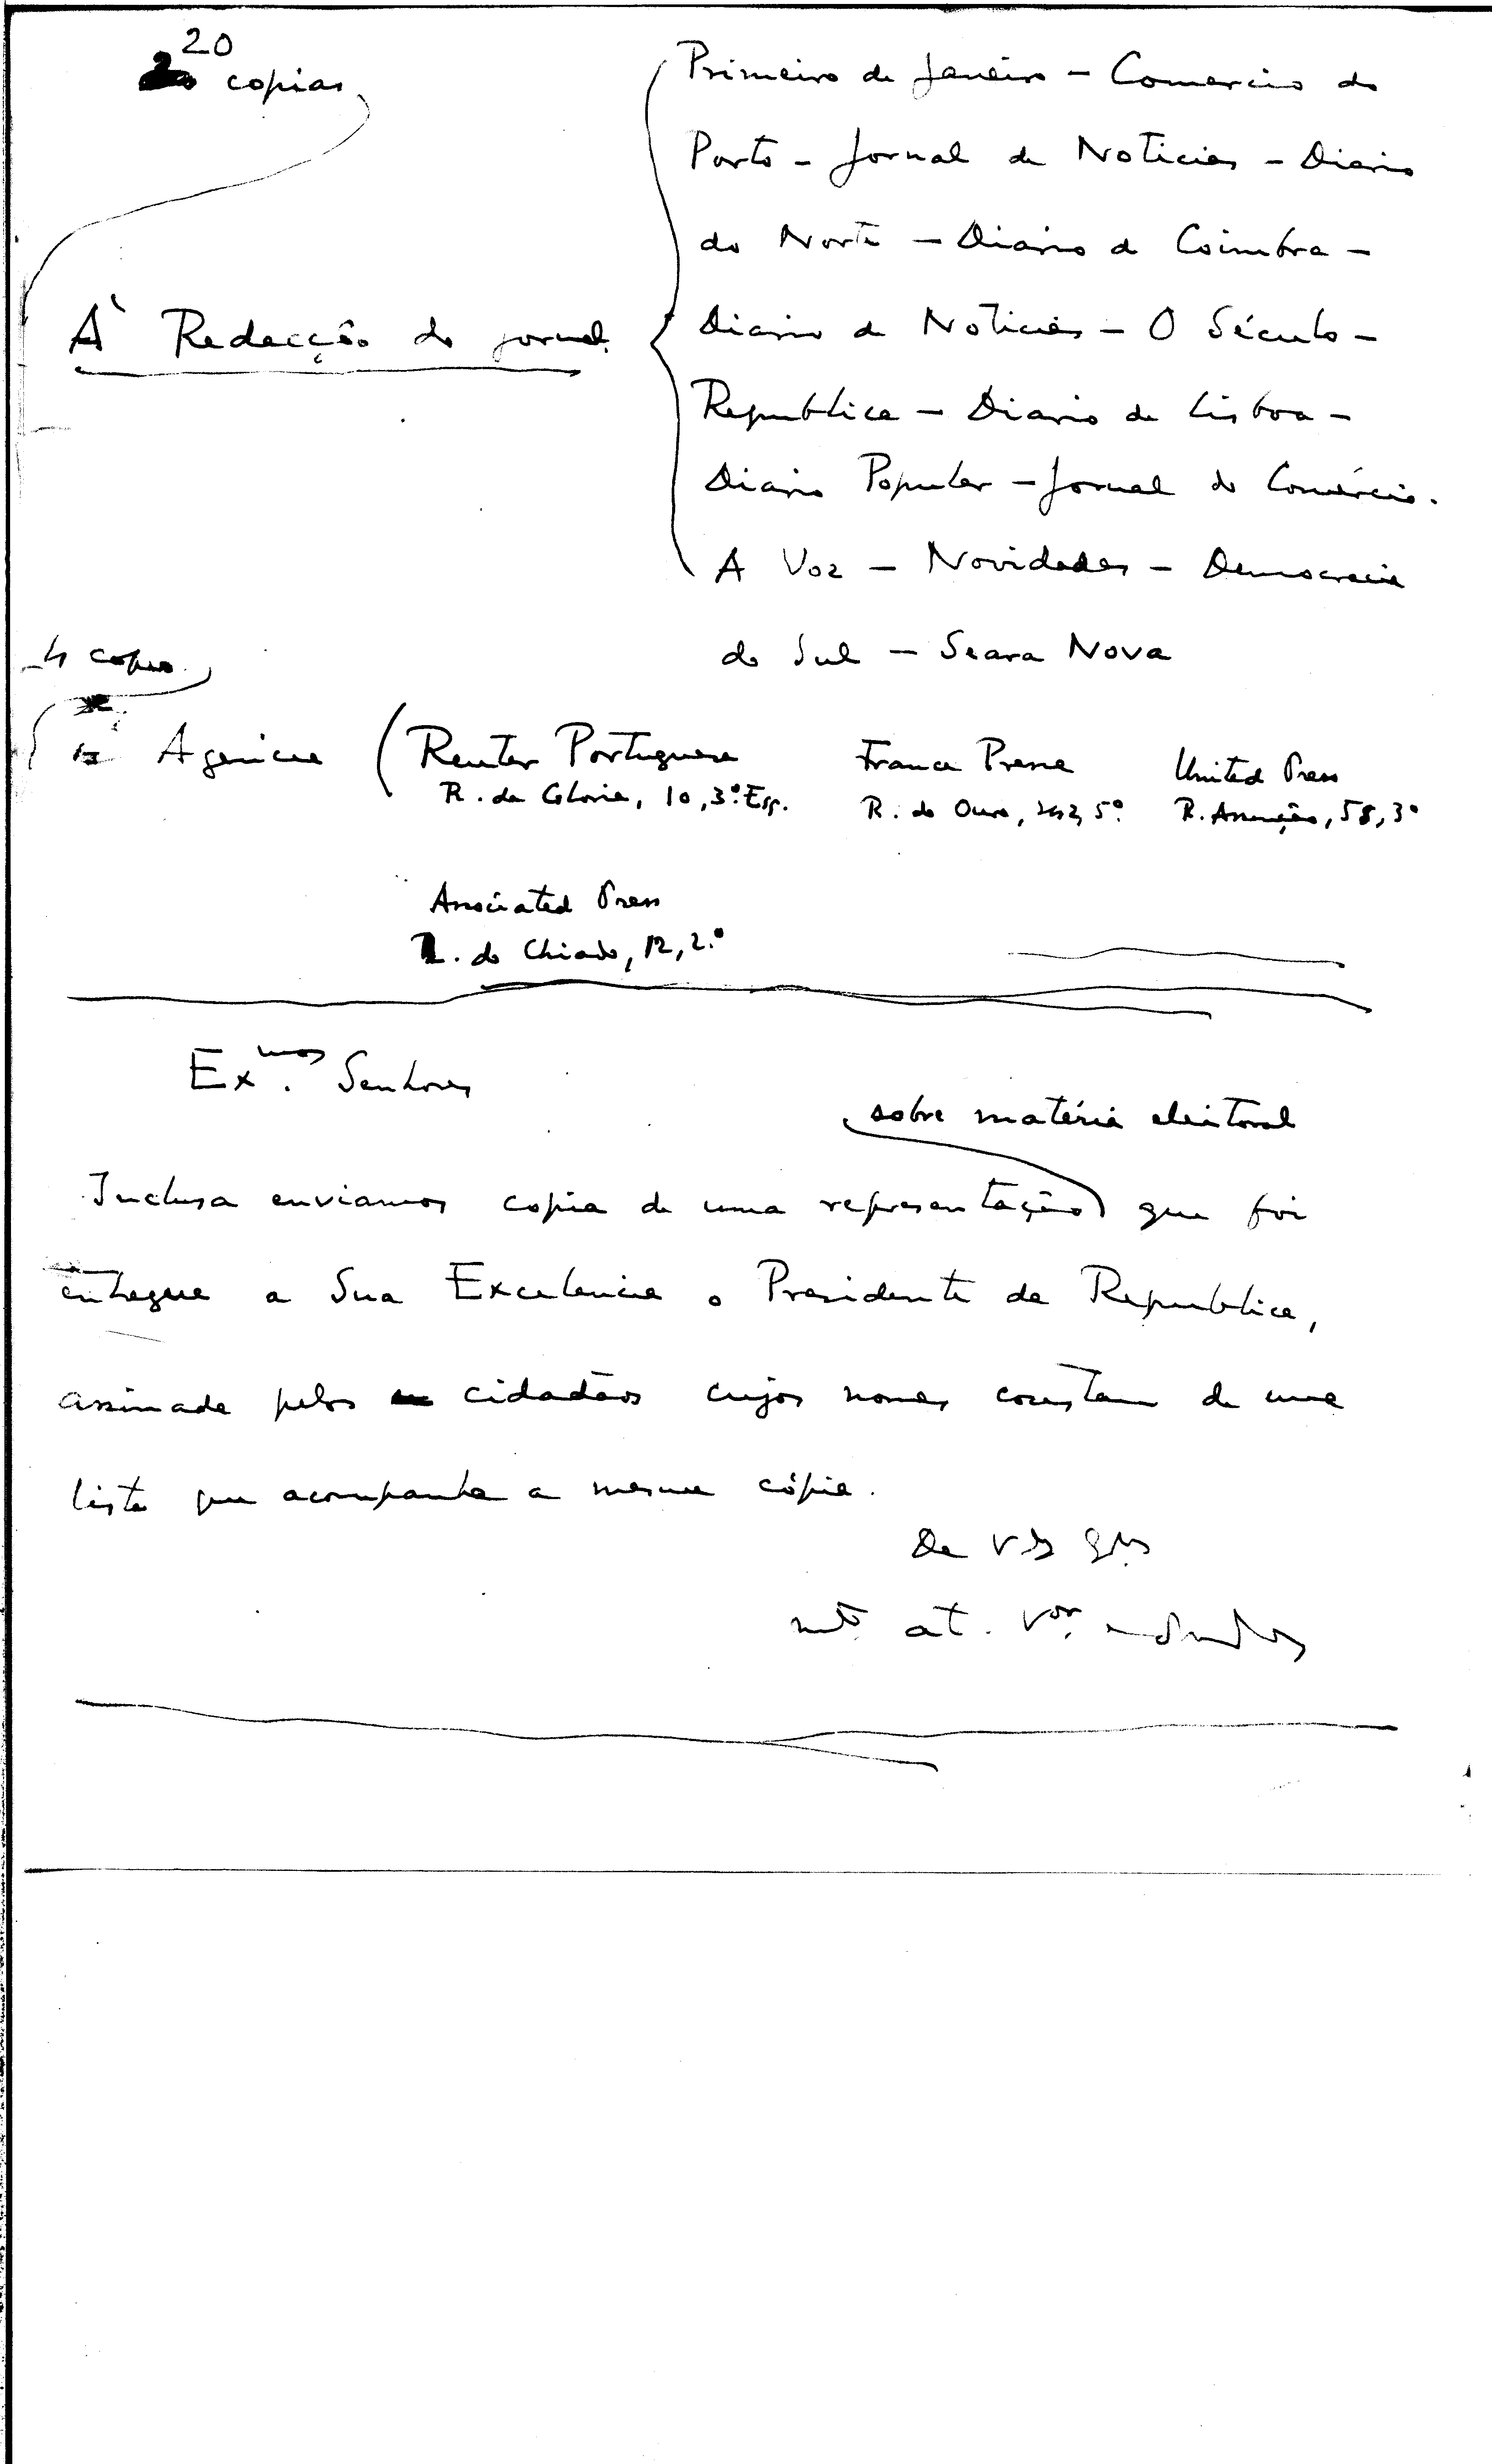 20
copias
Primeiro de Janeiro - Comercio do
Porto - Jornal de Noticias - Diario
do Norte - Diário de Coimbra -
À Redacção do jornal
Diario de Noticias - O Século -
Republica - Diario de Lisboa -
Diario Popular - Jornal do Comércio.
A Voz - Novidades - Democracia
do Sul - Seara Nova
4 copias
Agencia ( Reuter Portuguesa France Presse United Press
R. da Gloria, 10, 3º. Esq. R. do Ouro, 5º. R. Assunção, 58, 3º
Associated Press
R. do Chiado, 12, 2.º
Ex.mos Senhores
sobre matéria eleitoral
Inclusa enviamos copia de uma representação que foi
entregue a Sua Excelencia o Presidente da Republica,
assinada pelos cidadãos cujos nomes constam de uma
lista que acompanha a mesma cópia.
De
mto. at. Vor.